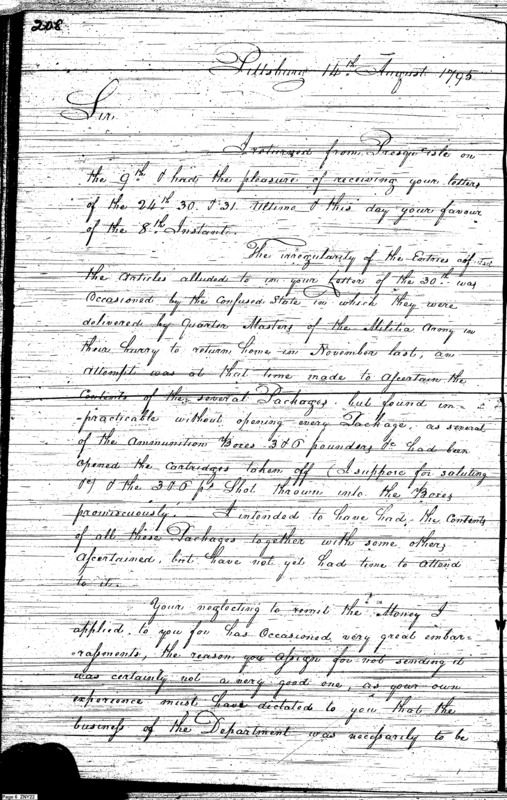 208
Pittsburg 14th August 1795
Sir,
I returned from Presqu'isle on
the 9th & had the pleasure of receiving your letters
of the 24th 30. & 31. Ultimo & this day your favour
of the 8th Instant.
The irregularity of the Entries of
the Articles alluded to in your Letter of the 30th was
Occasioned by the Confused State in which they were
delivered by Quarter Masters of the Militia Army in
their hurry to return home in November last, an
attempt was at that time made to ascertain the
Contents of the several Packages, but found im-
-practicable without opening every Package, as several
of the Ammunition Boxes 3 & 6 pounders &c had been
opened the Cartridges taken off (I suppose for saluting
&c) & the 3 & 6 pr Shot thrown into the Boxes
promiscuously. I intended to have had the Contents
of all these Packages together with some others
ascertained, but have not yet had time to attend
to it.
Your neglecting to remit the Money I
applied to you for has Occasioned very great embar-
-rassments, the reason you assign for not sending it
was certainly not a very good one, as your own
experience must have dictated to you that the
business of the Department was necessarily to be
Page 6 ZNY22